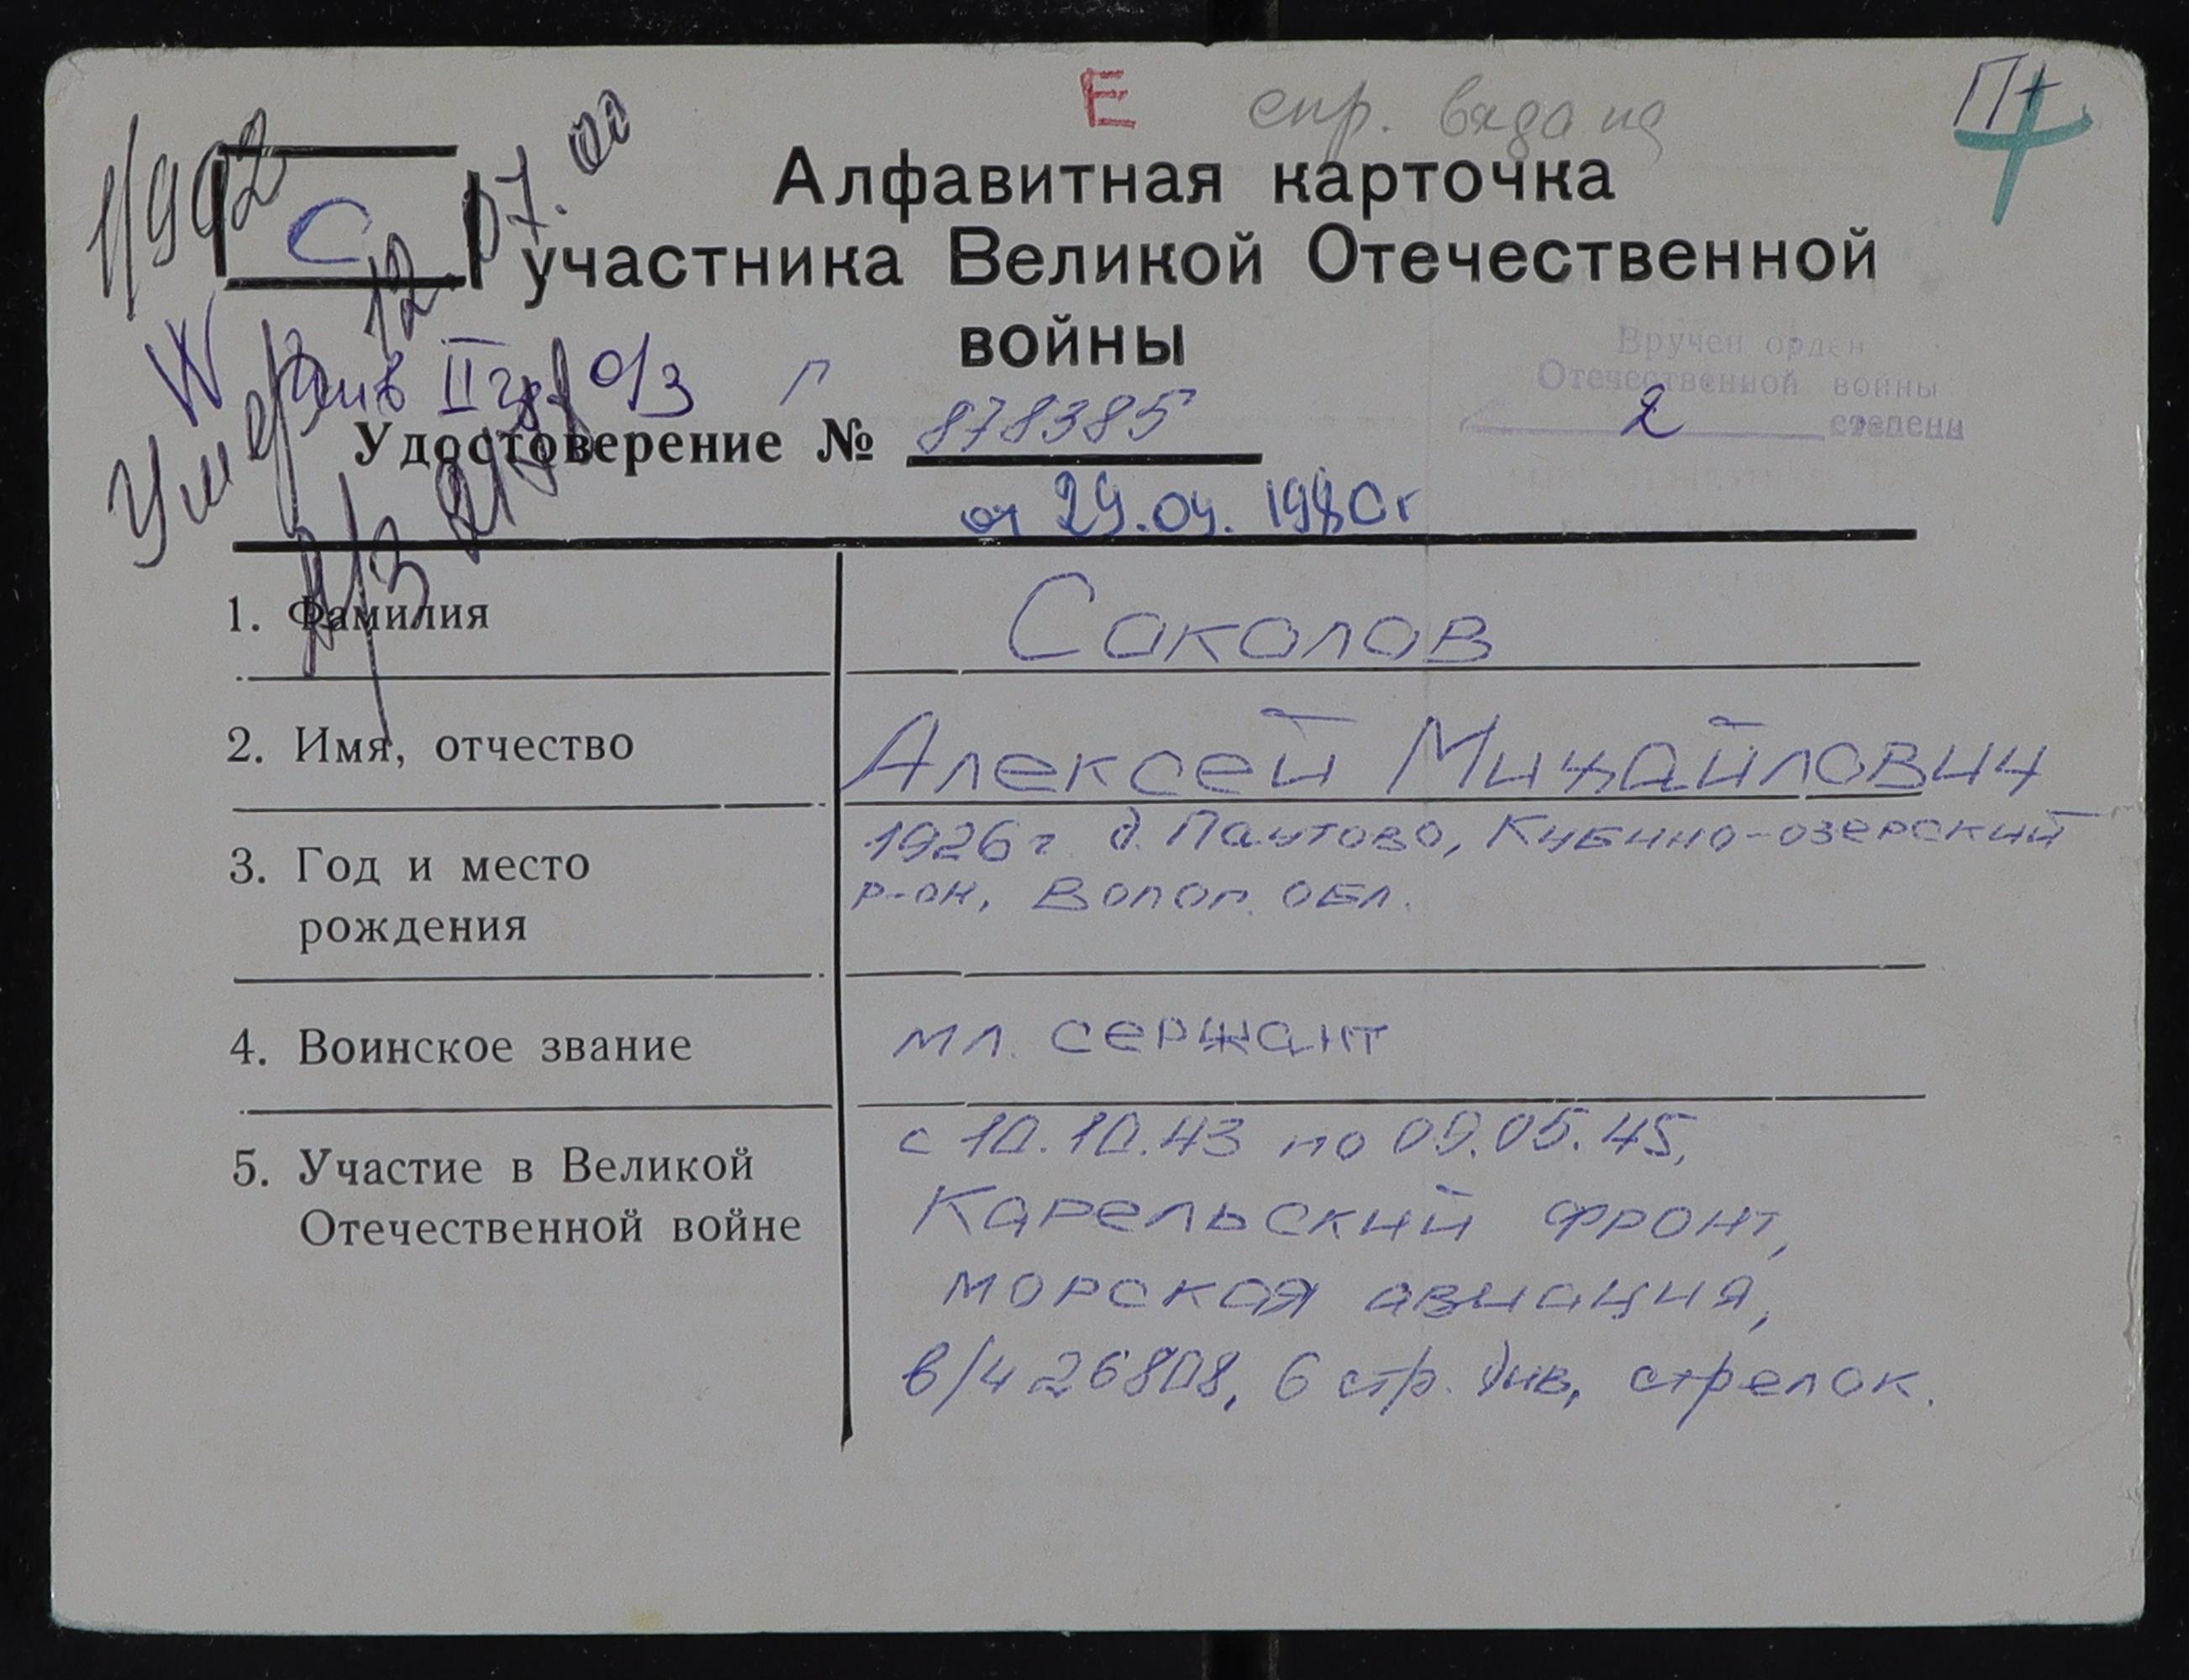 Е спр. выдана
П+
1/992
С
Алфавитная карточка
участника Великой Отечественной
войны
Умер 12.07.00
инв II гр о/з Г
Вручен орден
Отечественной войны
2 степени
Удостоверение № 878385
от 29.04.1980г
1. Фамилия
Соколов
2. Имя, отчество
Алексей Михайлович
3. Год и место
рождения
1926г д. Паутово, Кубино-озерский
р-он, Волог. обл.
4. Воинское звание
мл. сержант
5. Участие в Великой
Отечественной войне
с 10.10.43 по 09.05.45,
Карельский фронт,
морская авиация,
в/ч 26808, 6 стр. див, стрелок.